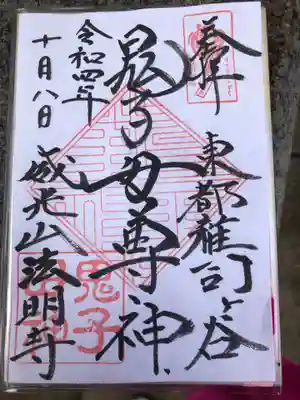 奉拝
東都雑司ヶ谷
鬼子母尊神
令和四年
十月八日
威光山法明寺